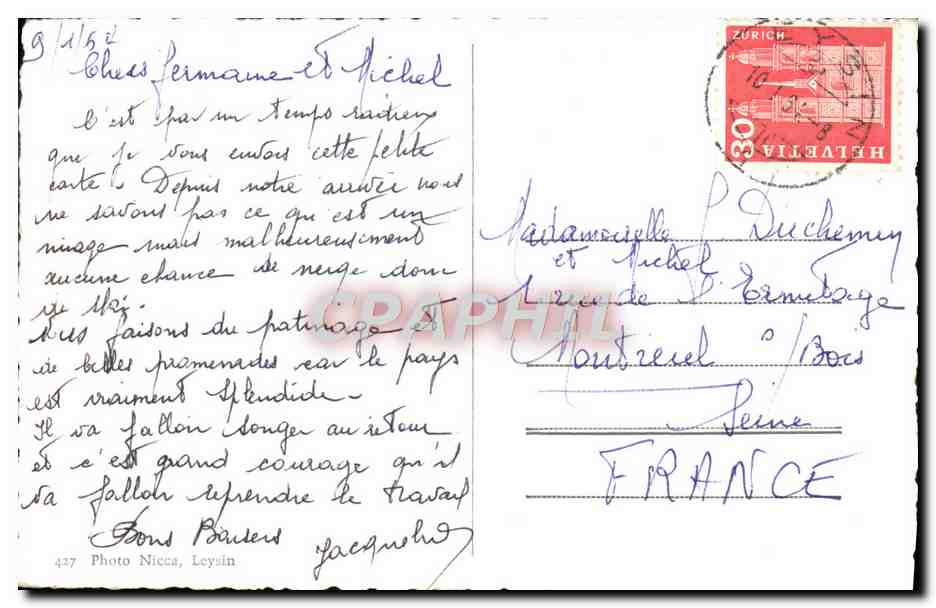 9/1/62
Chers Germaine et Michel
C'est par un temps radieux
que je vous envois cette petite
carte. Depuis notre arrivée nous
ne savons pas ce qu'est un
nuage mais malheureusement
aucune chance de neige donc
de ski.
Nous faisons du patinage et
de belles promenades car le pays
est vraiment splendide.
Il va falloir songer au retour
et c'est grand courage qu'il
va falloir reprendre le travail
Bons Baisers
Jacqueline
427 Photo Nicca, Leysin
ZÜRICH
30
HELVETIA
LEYSIN
Mademoiselle G Duchemin
et Michel
rue de l'Ermitage
Montreuil s/Bois
Seine
FRANCE
CPARHIL